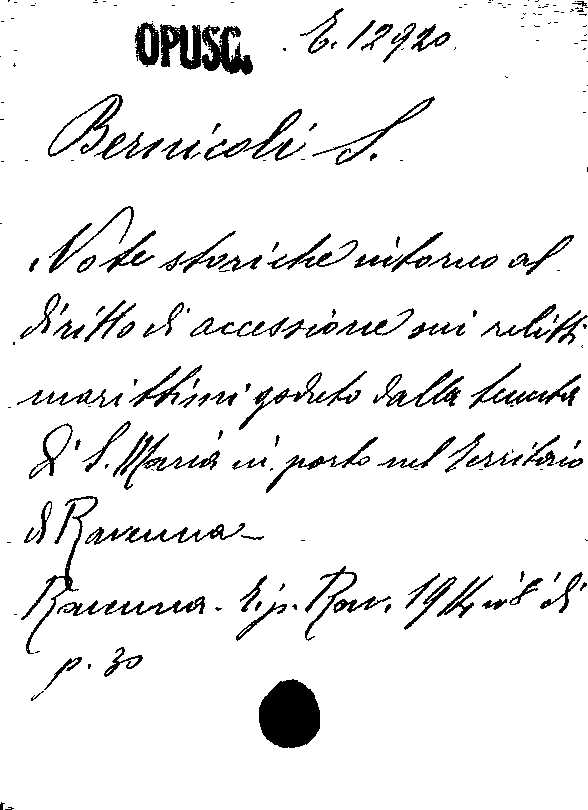 OPUSC. E. 12920
Bernicoli S.
Note storiche intorno al
diritto di accessione sui relitti
marittimi goduto dalla tenuta
di S. Maria in porto nel territorio
di Ravenna -
Ravenna. Tip. Rav. 1914 in 8° di
p. 30